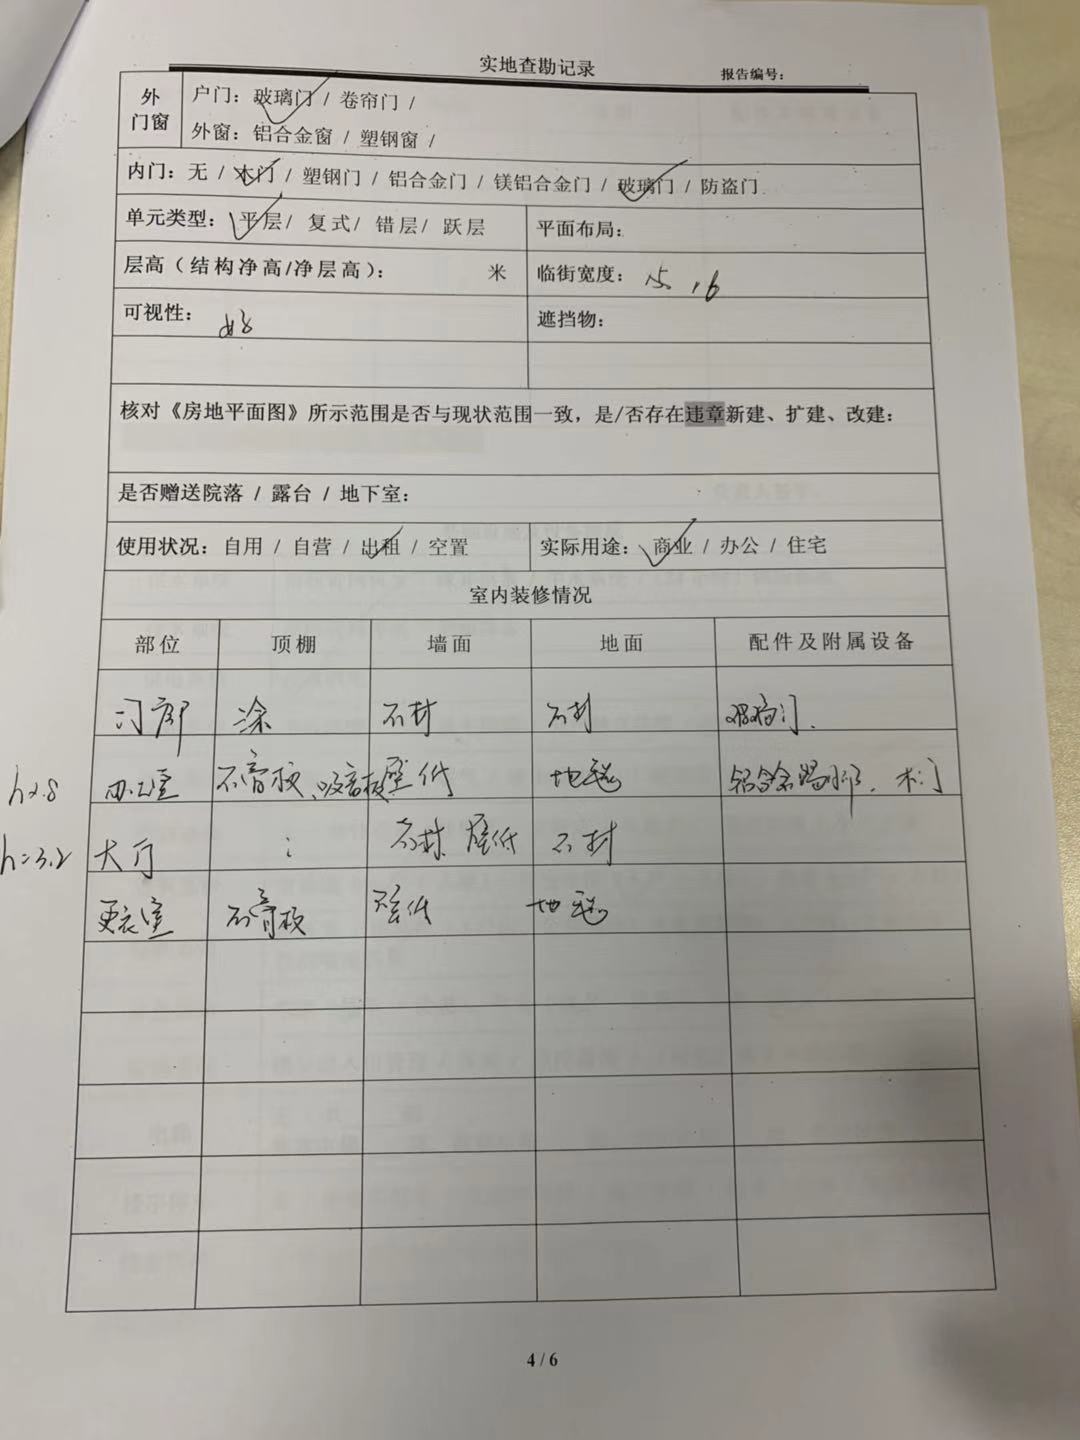 实地查勘记录
报告编号：
外门窗
户门：玻璃门 / 卷帘门 /
外窗：铝合金窗 / 塑钢窗 /
内门：无 / 木门 / 塑钢门 / 铝合金门 / 镁铝合金门 / 玻璃门 / 防盗门
单元类型：平层/ 复式/ 错层/ 跃层 平面布局：
层高（结构净高/净层高）： 米 临街宽度：
可视性：好 遮挡物：
核对《房地平面图》所示范围是否与现状范围一致，是/否存在违章新建、扩建、改建：
是否赠送院落 / 露台 / 地下室：
使用状况：自用 / 自营 / 出租 / 空置 实际用途：商业 / 办公 / 住宅
室内装修情况
部位 顶棚 墙面 地面 配件及附属设备
门廊 涂 石材 石材 玻璃门.
h2.8 办公室 石膏板、吸音板 壁纸 地毯 木门
h=3.2 大厅 石材、壁纸 石材
更衣室 石膏板 壁纸 地毯
4 / 6